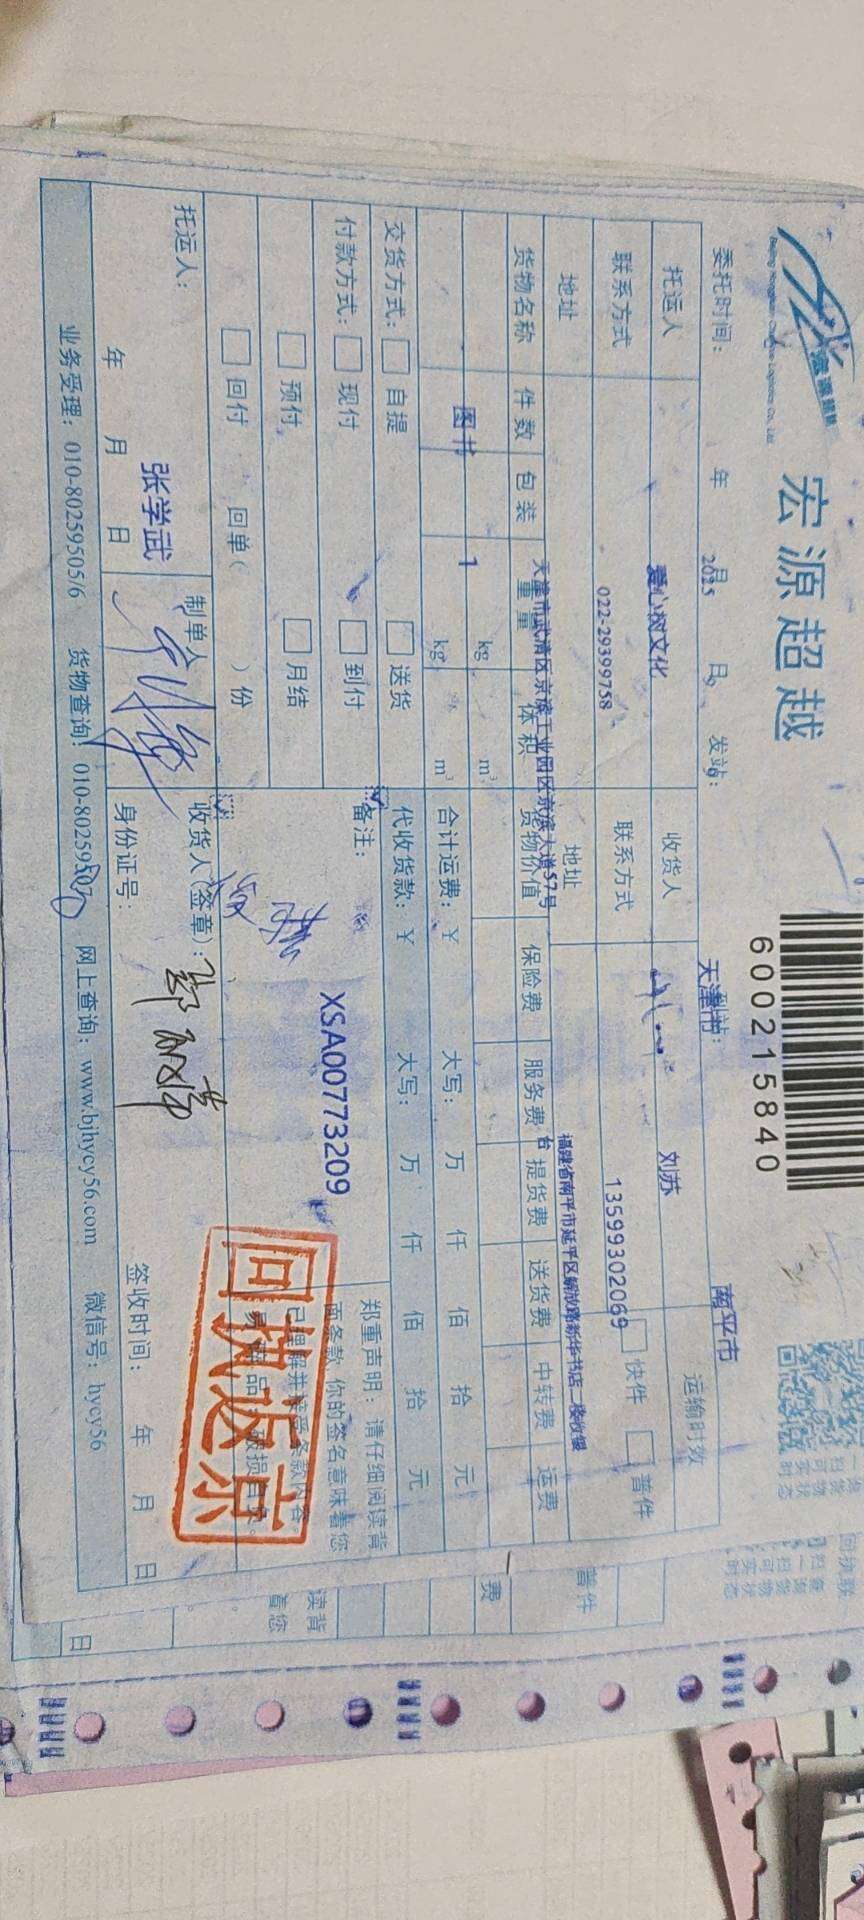 宏源超越
600215840
委托时间： 年 2025 月 9 日 9 发站： 天津市 到站： 南平市
托运人 爱心树文化 收货人 刘苏 运输时效
联系方式 022-29399758 联系方式 13599302069 快件 普件
地址 天津市武清区京滨工业园区京滨大道57号 地址 福建省南平市延平区解放路新华书店二楼收银台
货物名称 件数 包装 重量 体积 货物价值 保险费 服务费 提货费 送货费 中转费 运费
图书 1 kg m³
kg m³ 合计运费：¥ 大写： 万 仟 佰 拾 元
交货方式： 自提 送货 代收货款：¥ 大写： 万 仟 佰 拾 元
付款方式： 现付 到付 备注：
预付 月结 XSA00773209
回付 回单（ ）份
郑重声明：请仔细阅读背
面条款，你的签名意味着您
已理解并接受条款内容。
易碎品 破损自负。
回执返京
托运人： 张学武 制单人 收货人（签章）：
年 月 日 身份证号： 签收时间： 年 月 日
业务受理：010-80259505/6 货物查询：010-80259507 网上查询：www.bjhycy56.com 微信号：hycy56
回执联
普件
费
读背
着您
日